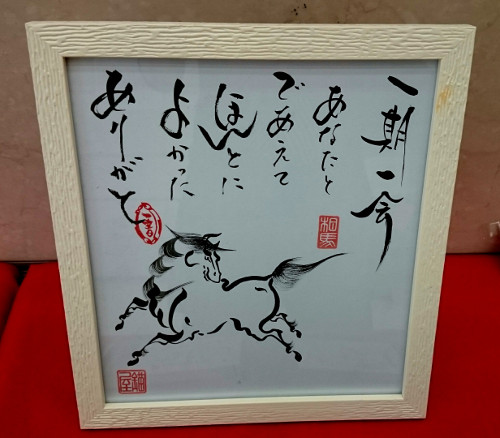 一期一会
あなたと
であえて
ほんとに
よかった
ありがとう
相馬